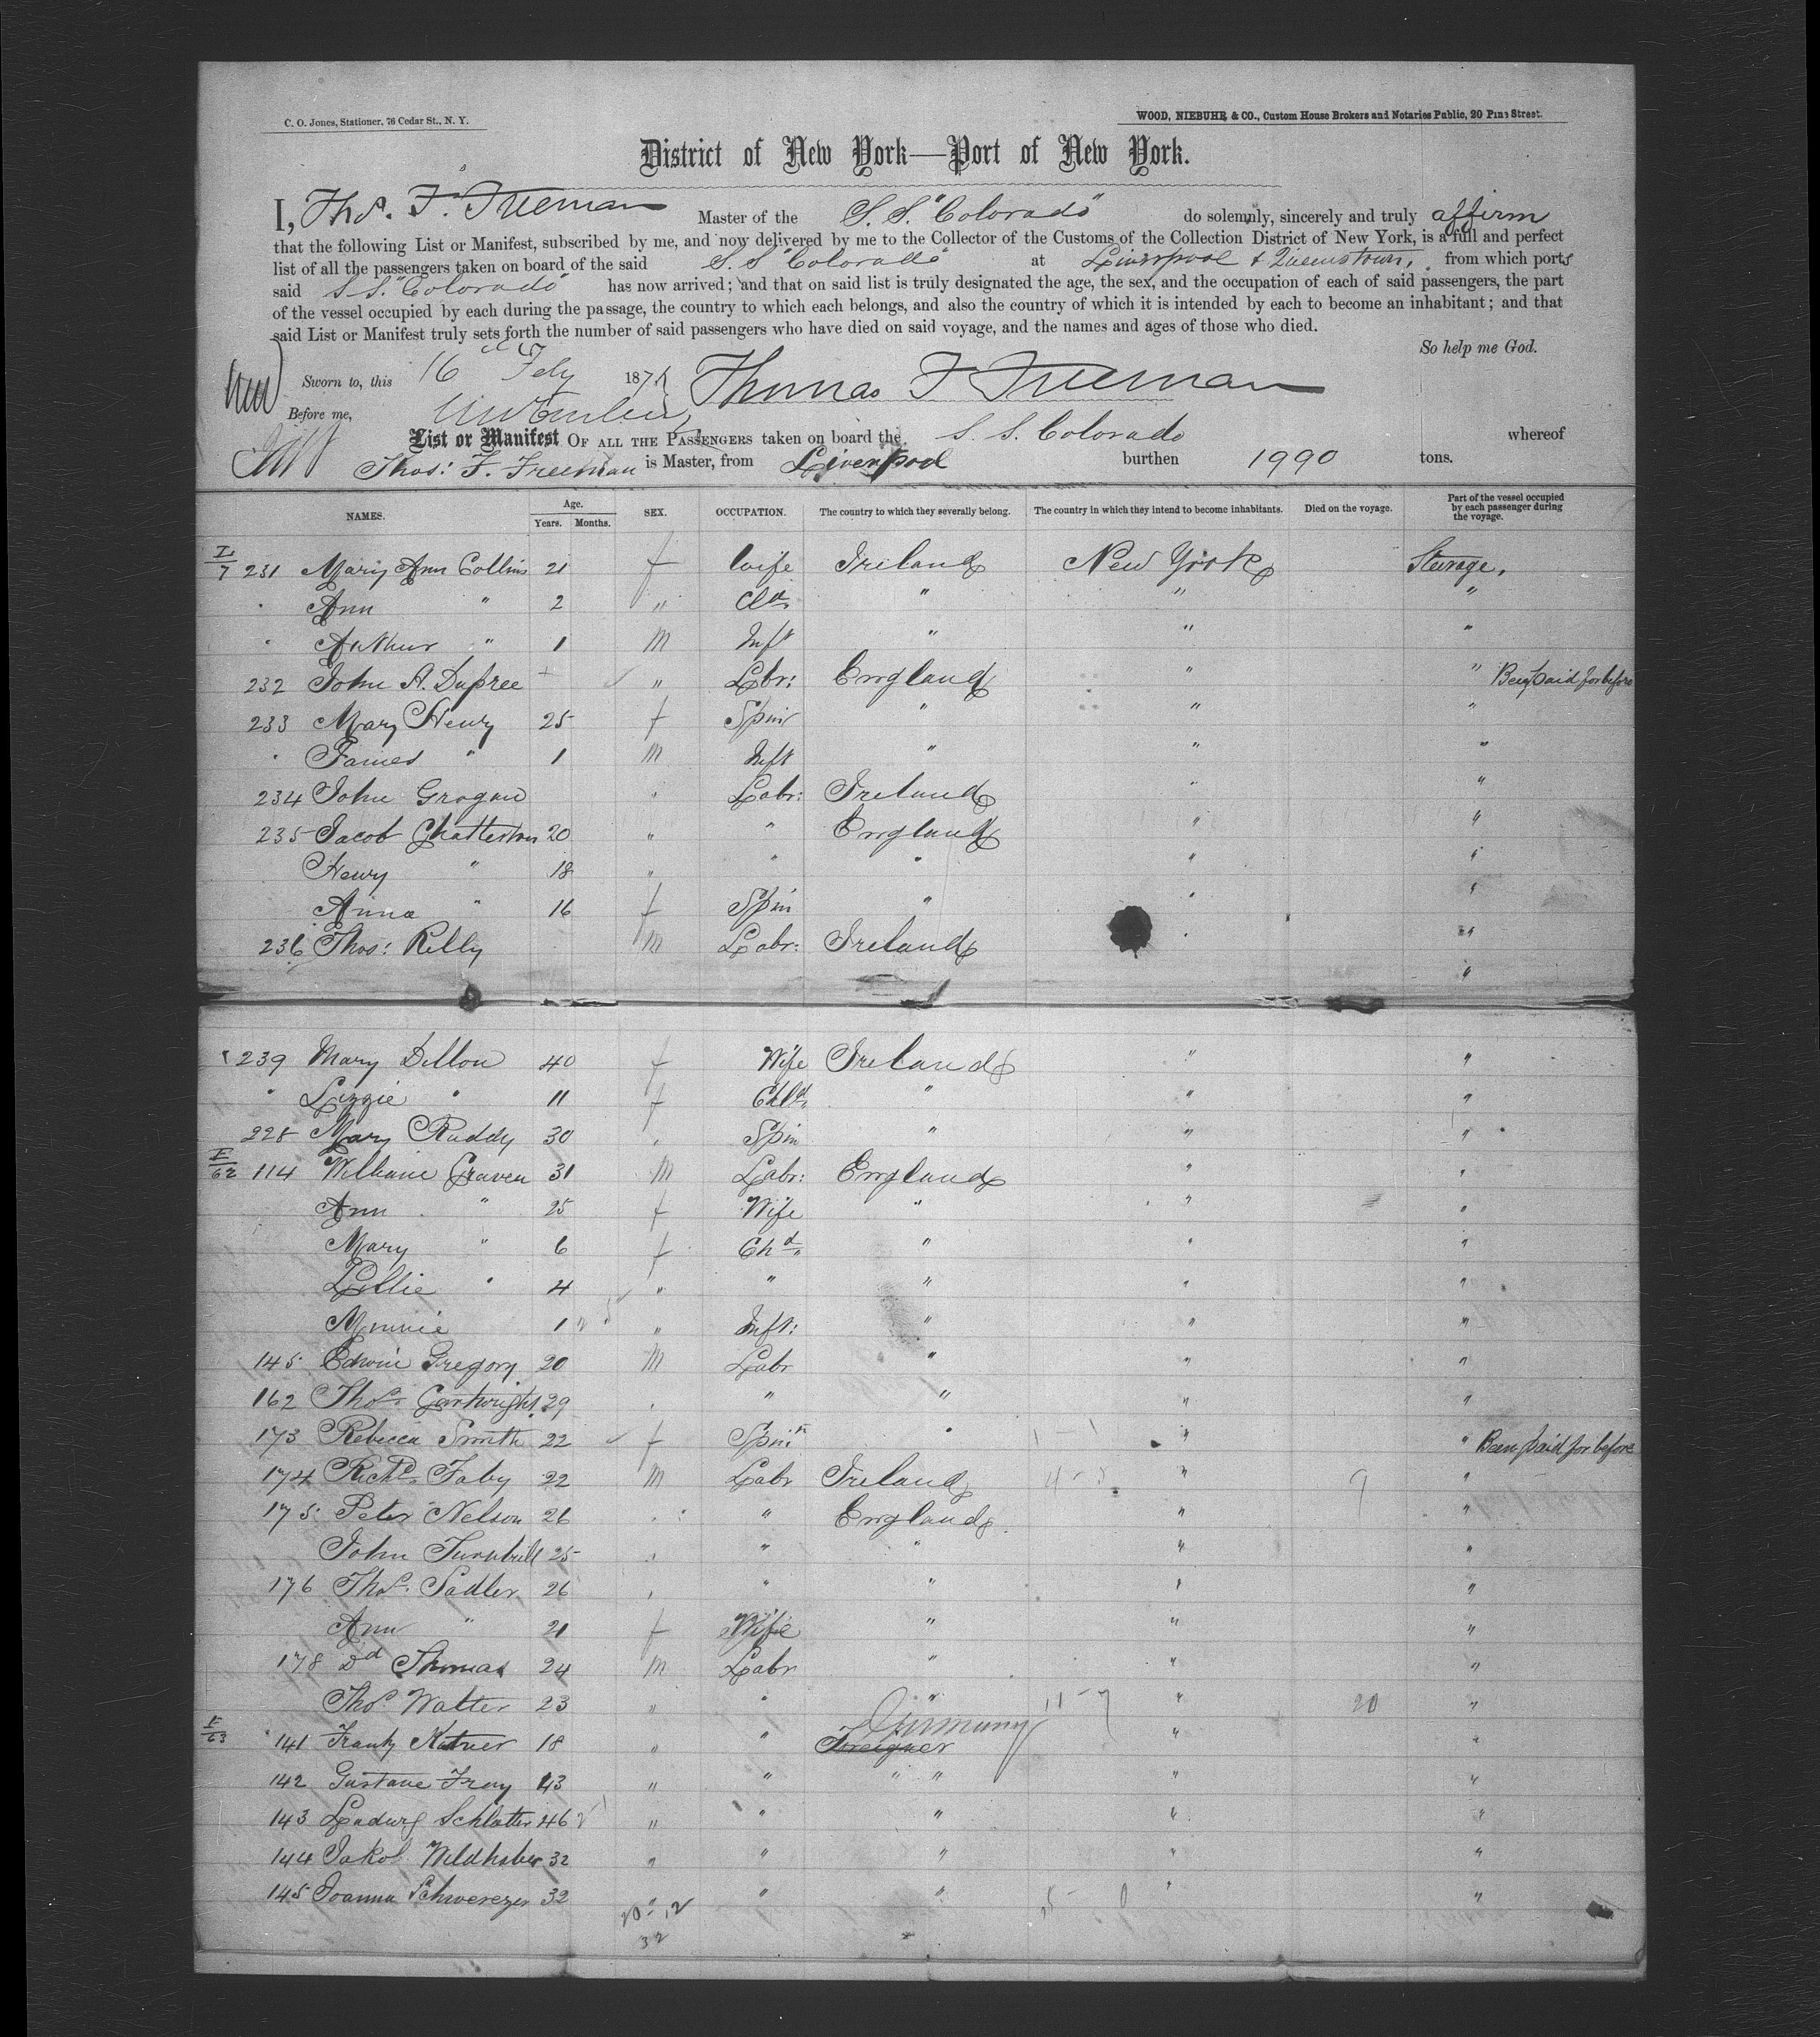 C. O. Jones, Stationer, 76 Cedar St., N. Y.
WOOD, NIEBUHR & CO., Custom House Brokers and Notaries Public, 20 Pine Street.
District of New York—Port of New York.
I, Thos. F. Freeman Master of the S. S. "Colorado" do solemnly, sincerely and truly affirm
that the following List or Manifest, subscribed by me, and now delivered by me to the Collector of the Customs of the Collection District of New York, is a full and perfect
list of all the passengers taken on board of the said S. S "Colorado" at Liverpool & Queenstown, from which ports
said S S. "Colorado" has now arrived; and that on said list is truly designated the age, the sex, and the occupation of each of said passengers, the part
of the vessel occupied by each during the passage, the country to which each belongs, and also the country of which it is intended by each to become an inhabitant; and that
said List or Manifest truly sets forth the number of said passengers who have died on said voyage, and the names and ages of those who died.
So help me God.
Sworn to, this 16 Feby 187 Thomas F Freeman
Before me,
List or Manifest OF ALL THE PASSENGERS taken on board the S. S. Colorado whereof
Thos: F. Freeman is Master, from Liverpool burthen 1990 tons.
NAMES. Age. Years. Months. SEX. OCCUPATION. The country to which they severally belong. The country in which they intend to become inhabitants. Died on the voyage. Part of the vessel occupied by each passenger during the voyage.
231 Mary Ann Collins 21 f Wife Ireland New York Steerage.
Ann " 2 " Cld " " "
Arthur " 1 M Inft " " "
232 John A. Dupree + " Lbr: England " " Been paid for before
233 Mary Henry 25 f Spin " " "
James " 1 M Inft " " "
234 John Grogan " Labr: Ireland " "
235 Jacob Chatterton 20 " " England " "
Henry " 18 " " " " "
Anna " 16 f Spin " " "
236 Thos: Rilly M Labr: Ireland " "
"
239 Mary Dillon 40 f Wife Ireland " "
" Lizzie " 11 f Chld " " "
228 Mary Ruddy 30 " Spin " " "
114 William Craven 31 M Labr: England " "
Ann " 25 f Wife " " "
Mary " 6 f Chd " " "
Lillie " 4 " " " " "
Minnie 1 " Inft: " " "
145 Edwin Gregory 20 M Labr " " "
162 Thos. Cartwright 29 " " " " "
173 Rebecca Smith 22 f Spin " " " Been paid for before
174 Richd. Faby 22 M Labr Ireland " 9 "
175 Peter Nelson 26 " " England " "
John Turnbull 25 " " " " "
176 Thos. Sadler 26 " " " " "
Ann " 21 f Wife " " "
178 Dd Thomas 24 M Labr " " "
Thos. Walter 23 " " " 11-7 " 20 "
141 Frank Katner 18 " " Foreigner Germany " "
142 Gustave Fray 43 " " " " " "
143 Ludwig Schlatter 46 " " " " "
144 Jakob Wildhaber 32 " " " " "
145 Joanna Schwerezer 32 " " " " "
32